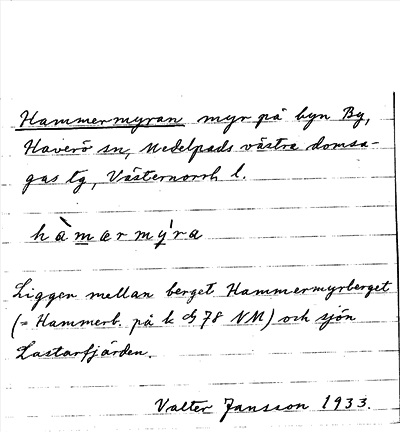 Hammermyran myr på byn By,
Haverö sn, Medelpads västra domsa-
gas tg, Västernorrl l.
hàmarmýra
Ligger mellan berget Hammermyrberget
(= Hammerb. på k 78 NM) och sjön
Lastarfjärden.
Valter Jansson 1933.